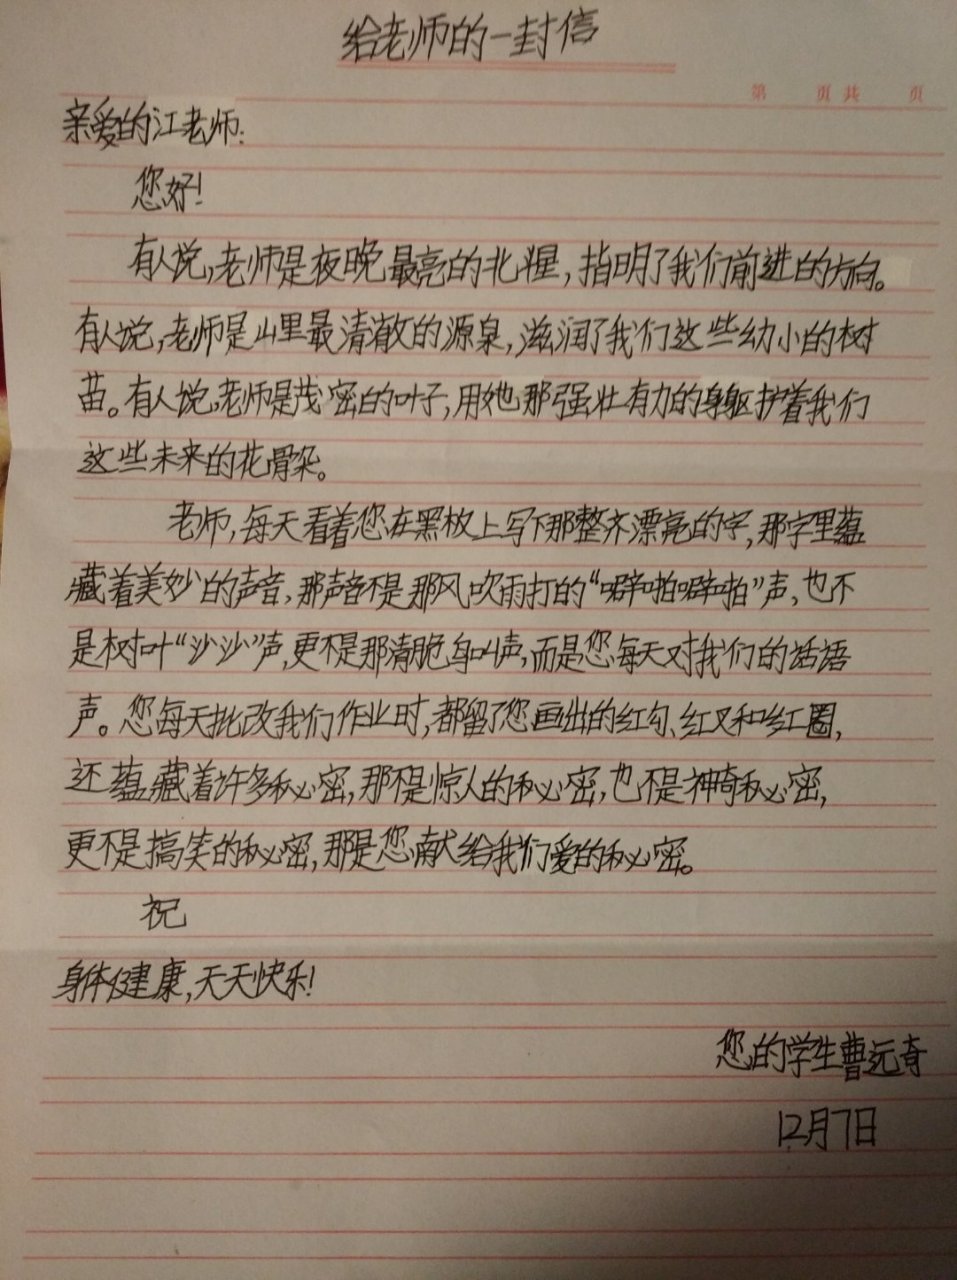 给老师的一封信
第 页共 页
亲爱的江老师:
您好!
有人说,老师是夜晚最亮的北斗星,指明了我们前进的方向。
有人说,老师是山里最清澈的源泉,滋润了我们这些幼小的树
苗。有人说,老师是茂密的叶子,用她那强壮有力的身躯护着我们
这些未来的花骨朵。
老师,每天看着您在黑板上写下那整齐漂亮的字,那字里蕴
藏着美妙的声音,那声音不是那风吹雨打的“噼啪噼啪”声,也不
是树叶“沙沙”声,更不是那清脆鸟叫声,而是您每天对我们的话语
声。您每天批改我们作业时,都留了您画出的红勾、红叉和红圈,
还蕴藏着许多秘密,那不是惊人的秘密,也不是神奇秘密,
更不是搞笑的秘密,那是您献给我们爱的秘密。
祝
身体健康,天天快乐!
您的学生曹远奇
12月7日